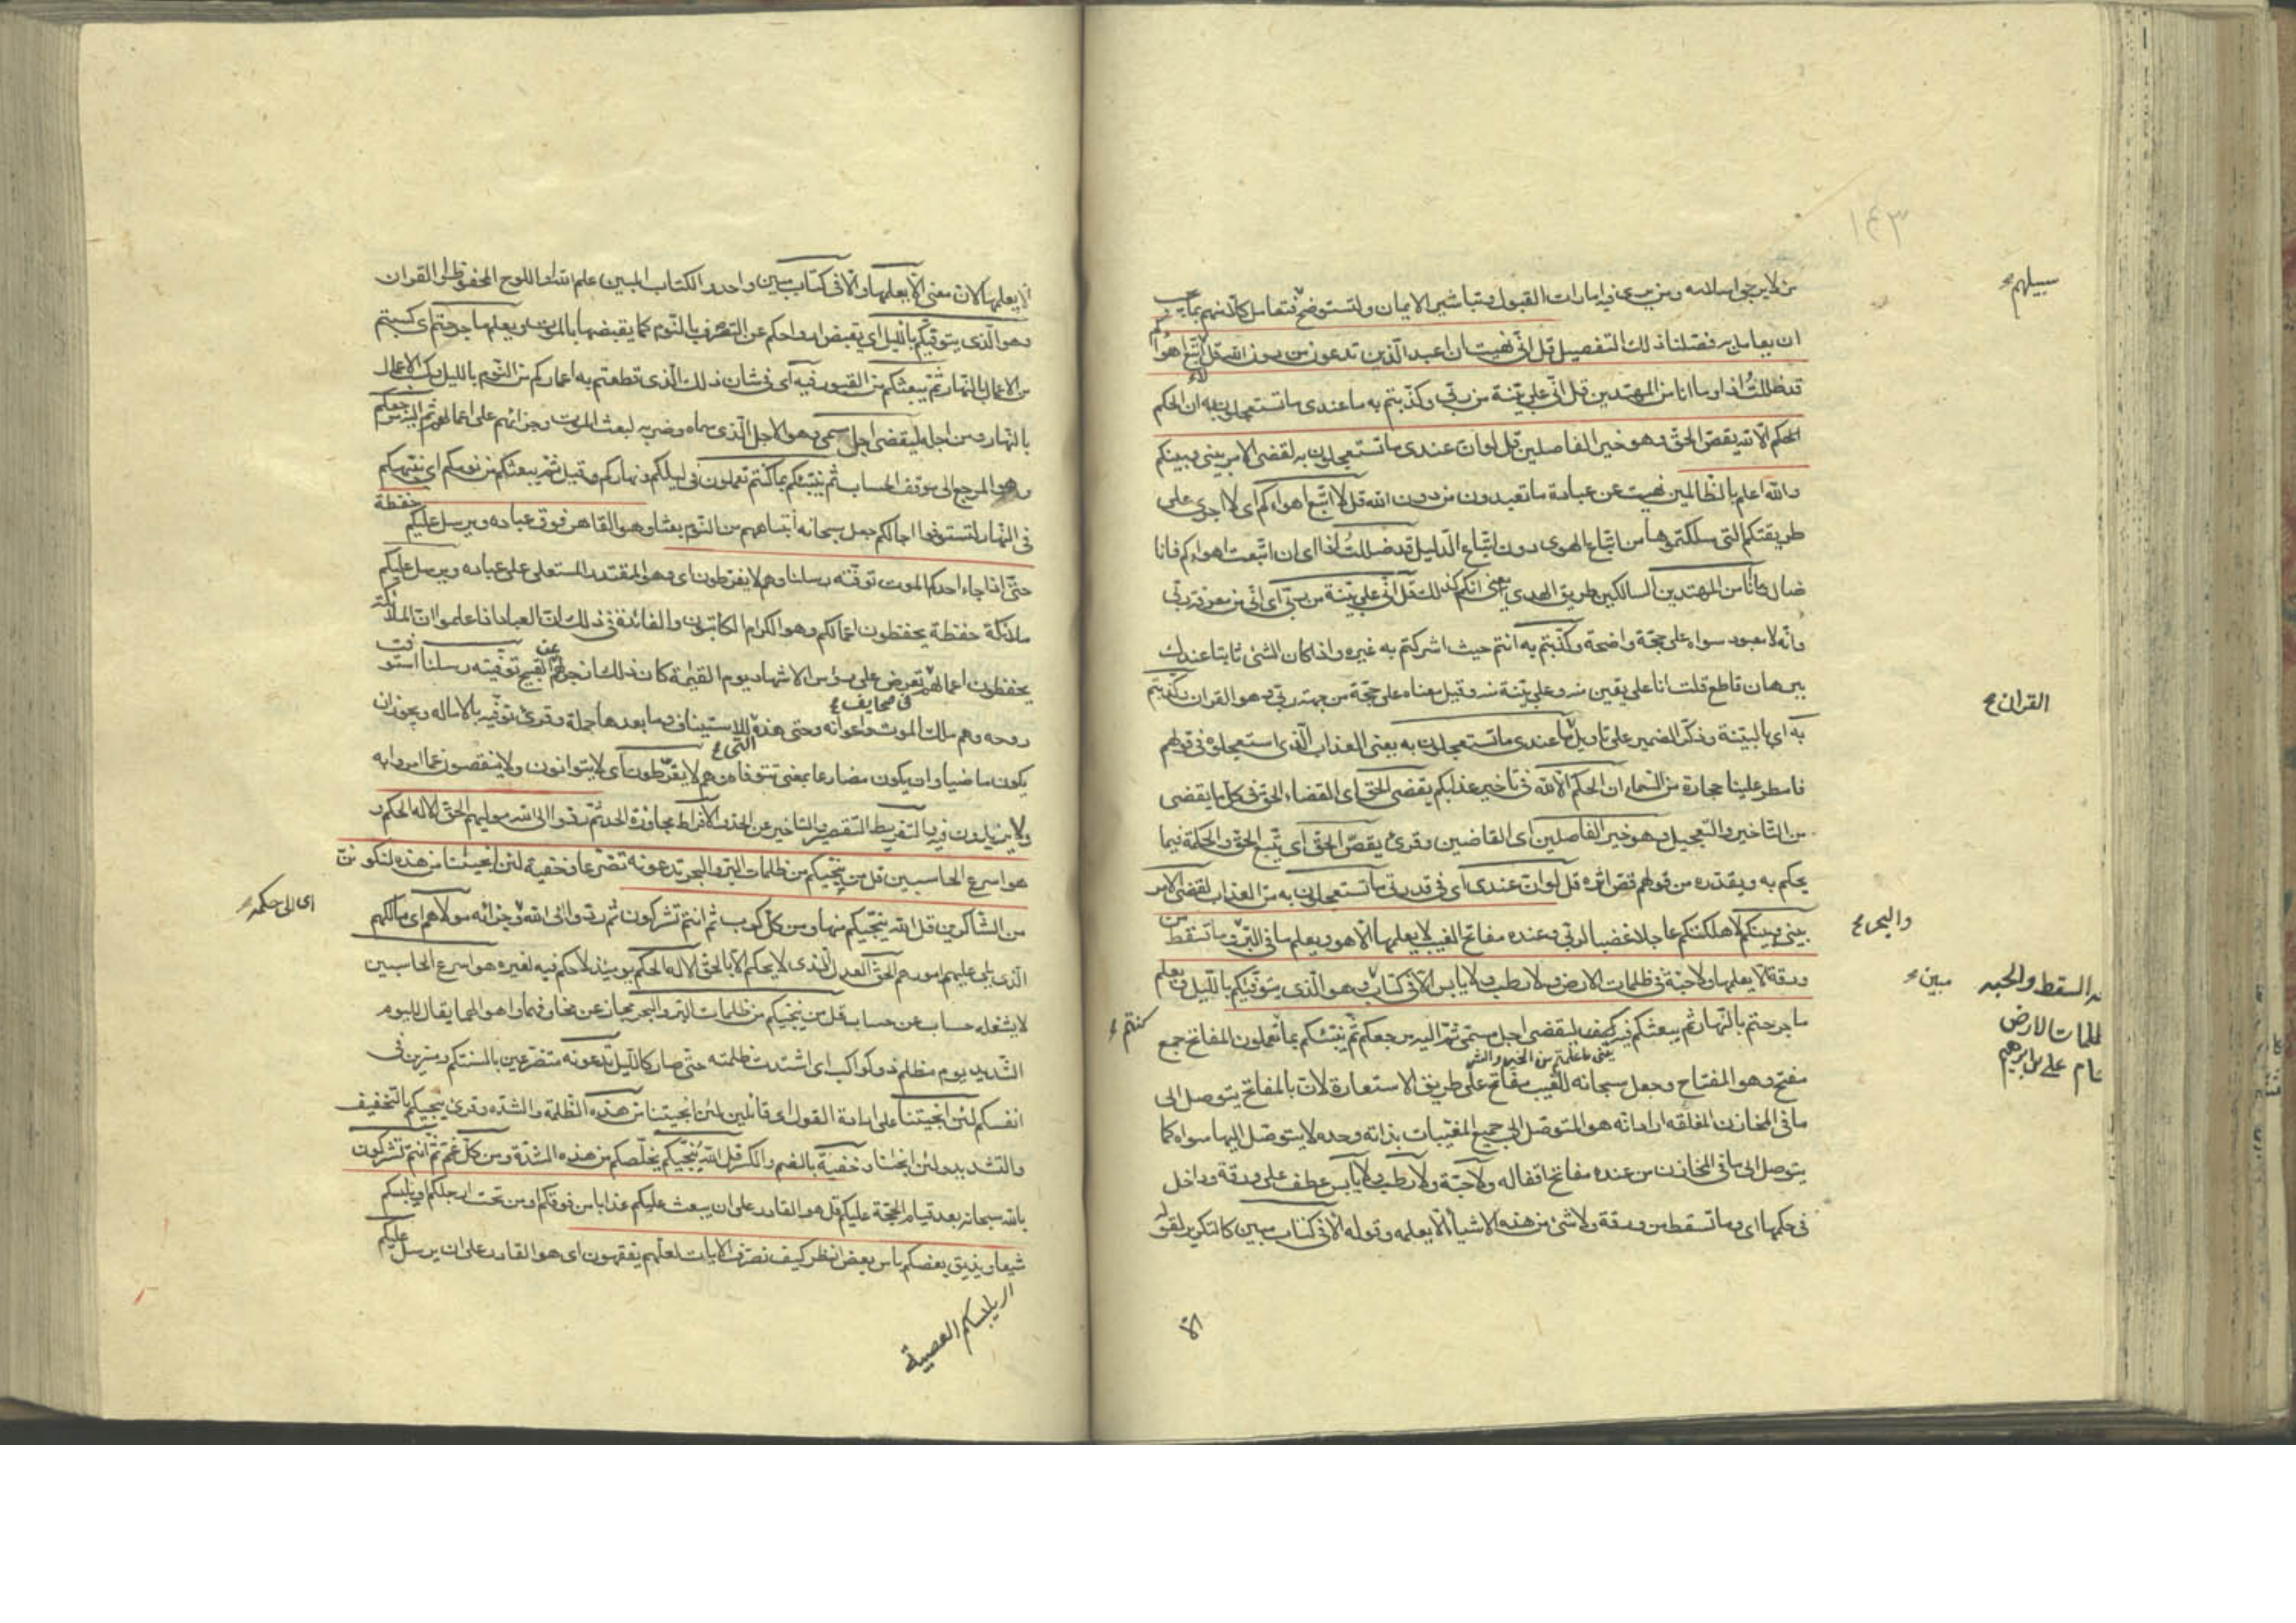 ١٤٣
سبيلهم
من لا يرجى اسلامه ومن يرى فيه امارات القبول وتباشير الايمان ولتستوضح فتعامل كلا منهم بما يجب
ان يعامل به فصلنا ذلك التفصيل قل انى نهيت ان اعبد الذين تدعون من دون الله قل لا اتبع اهواءكم
قد ضللت اذا وما انا من المهتدين قل انى على بينة من ربى وكذبتم به ما عندى ما تستعجلون به ان الحكم
الحكم الا لله يقص الحق وهو خير الفاصلين قل لو ان عندى ما تستعجلون به لقضى الامر بينى وبينكم
والله اعلم بالظالمين نهيت عن عبادة ما تعبدون من دون الله قل لا اتبع اهواءكم اى لا اجرى على
طريقتكم التى سلكتموها من اتباع الهوى دون اتباع الدليل قد ضللت اذا اى ان اتبعت اهواءكم فانا
ضال وما انا من المهتدين السالكين طريق الهدى يعنى انكم كذلك قل انى على بينة من ربى اى انى من معرفة ربى
وانه لا معبود سواه على حجة واضحة وكذبتم به انتم حيث اشركتم به غيره واذا كان الشئ ثابتا عندك
ببرهان قاطع قلت انا على يقين منه وعلى بينة منه وقيل معناه على حجة من جهة ربى وهو القران وكذبتم
القران
به اى بالبينة وذكر الضمير على تاويل ما عندى ما تستعجلون به يعنى العذاب الذى استعجلوه فى قولهم
فامطر علينا حجارة من السماء ان الحكم الا لله فى تاخير عذابكم يقضى الحق اى القضاء الحق فى كل ما يقضى
من التاخير والتعجيل وهو خير الفاصلين اى القاضين وقرئ يقص الحق اى يتبع الحق والحكمة فيما
يحكم به ويقدره من قولهم قص اثره قل لو ان عندى اى فى قدرتى ما تستعجلون به من العذاب لقضى الامر
بينى وبينكم لاهلكتكم عاجلا غضبا لربى وعنده مفاتح الغيب لا يعلمها الا هو ويعلم ما فى البر وما تسقط من
والبحر
ورقة الا يعلمها ولا حبة فى ظلمات الارض ولا رطب ولا يابس الا فى كتاب وهو الذى يتوفيكم بالليل ويعلم
مبين
السقط والحبه
ظلمات الارض
على بن ابرهيم
ما جرحتم بالنهار ثم يبعثكم فيه ليقضى اجل مسمى ثم اليه مرجعكم ثم ينبئكم بما تعملون المفاتح جمع
كنتم
مفتح وهو المفتاح وجعل سبحانه للغيب مفاتح على طريق الاستعارة لان بالمفاتح يتوصل الى
ما فى المخازن المغلقه اراد انه هو المتوصل الى جميع المغيبات بذاته وحده لا يتوصل اليها سواه كما
يتوصل الى ما فى المخازن من عنده مفاتح اقفاله ولا حبة ولا رطب ولا يابس عطف على ورقة وداخل
فى حكمها اى وما تسقط من ورقة ولا شئ من هذه الاشياء الا يعلمه وقوله الا فى كتاب مبين كالتكرير لقوله
الا
الا يعلمها لان معنى الا يعلمها والا فى كتاب مبين واحد والكتاب المبين علم الله او اللوح المحفوظ او القران
وهو الذى يتوفيكم بالليل اى يقبض ارواحكم عن التصرف بالنوم كما يقبضها بالموت ويعلم ما جرحتم اى كسبتم
من الاعمال بالنهار ثم يبعثكم من القبور فيه اى فى شان ذلك الذى قطعتم به اعماركم من النوم بالليل وكسب الاعمال
بالنهار ومن اجله ليقضى اجل مسمى وهو الاجل الذى سماه وضربه لبعث الموتى وجزائهم على اعمالهم ثم اليه مرجعكم
وهو المرجع الى موقف الحساب ثم ينبئكم بما كنتم تعملون فى ليلكم ونهاركم وقيل ثم يبعثكم من نومكم اى ينبهكم
فى النهار لتستوفوا اجالكم جعل سبحانه انتباههم من النوم بعثا وهو القاهر فوق عباده ويرسل عليكم حفظة
حتى اذا جاء احدكم الموت توفته رسلنا وهم لا يفرطون اى وهو المقتدر المستعلى على عباده ويرسل عليكم
ملائكة حفظة يحفظون اعمالكم وهو الكرام الكاتبون والفائدة فى ذلك ان العباد اذا علموا ان الملائكة
يحفظون اعمالهم تعرض على رؤس الاشهاد يوم القيمة كان ذلك ازجر لهم عن القبيح توفته رسلنا استوفت
فى صحايف
روحه وهم ملك الموت واعوانه وحتى هذه للاستيناف وما بعدها جملة وقرئ توفيه بالاماله ويجوز ان
التى
يكون ماضيا وان يكون مضارعا بمعنى تتوفاه وهم لا يفرطون اى لا يتوانون ولا ينقصون مما امروا به
ولا يزيدون فيه والتفريط التقصير والتاخير عن الحد والافراط مجاوزة الحد ثم ردوا الى الله موليهم الحق الا له الحكم و
هو اسرع الحاسبين قل من ينجيكم من ظلمات البر والبحر تدعونه تضرعا وخفية لئن انجيتنا من هذه لنكونن
من الشاكرين قل الله ينجيكم منها ومن كل كرب ثم انتم تشركون ثم ردوا الى الله وجزائه مولاهم اى مالكهم
اى الى حكمه
الذى يلى عليهم امورهم الحق العدل الذى لا يحكم الا بالحق الا له الحكم يومئذ لا حكم فيه لغيره وهو اسرع الحاسبين
لا يشغله حساب عن حساب قل من ينجيكم من ظلمات البر والبحر مجاز عن مخاوفهما واهوالهما يقال لليوم
الشديد يوم مظلم ذو كواكب اى اشتدت ظلمته حتى صار كالليل تدعونه متضرعين بالسنتكم ومسرين فى
انفسكم لئن انجيتنا على ارادة القول اى قائلين لئن انجيتنا من هذه الظلمة والشده وقرئ ينجيكم بالتخفيف
والتشديد ولئن انجانا وخفية بالضم والكسر قل الله ينجيكم يخلصكم من هذه الشدة ومن كل غم ثم انتم تشركون
بالله سبحانه بعد قيام الحجة عليكم قل هو القادر على ان يبعث عليكم عذابا من فوقكم او من تحت ارجلكم او يلبسكم
شيعا ويذيق بعضكم باس بعض انظر كيف نصرف الايات لعلهم يفقهون اى هو القادر على ان يرسل عليكم